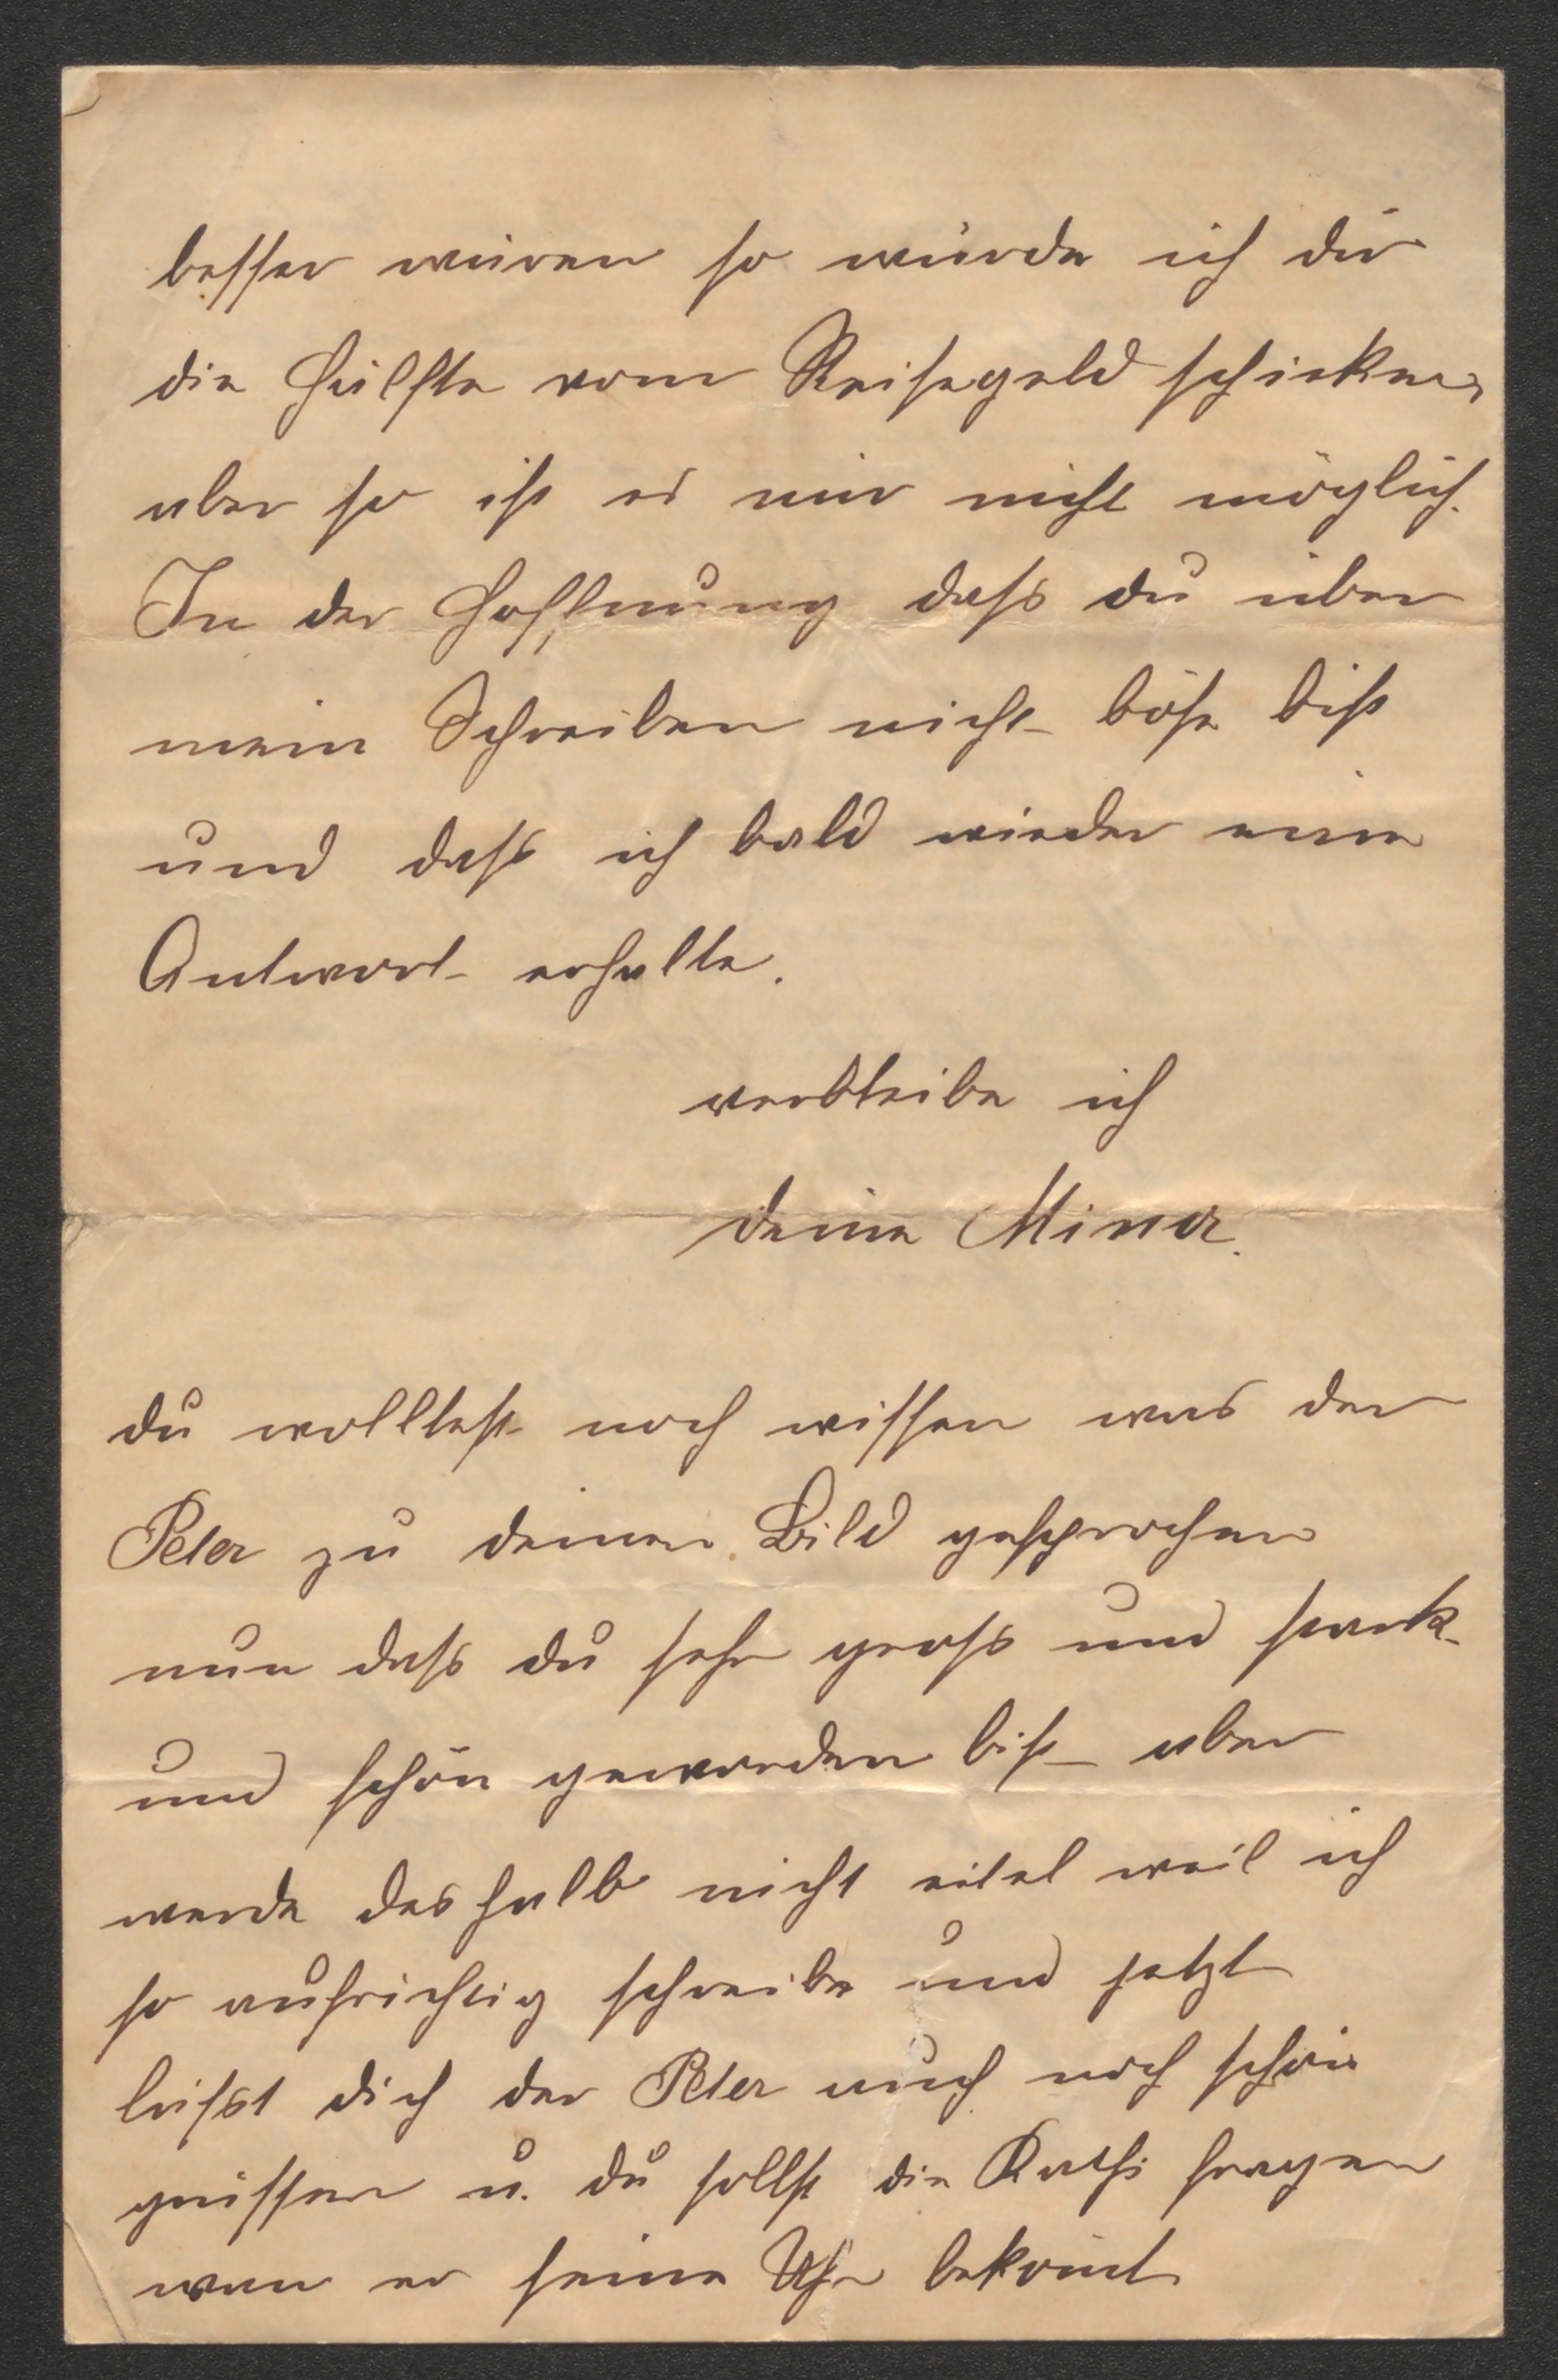 besser wären so würde ich dir
die Hälfte vom Reisegeld schicken,
aber so ist es mir nicht möglich.
In der Hoffnung dass du über
mein Schreiben nicht böse bist
und dass ich bald wieder eine
Antwort erhalte.
verbleibe ich
deine Mina.
du wolltest noch wissen was der
Peter zu deinen Bild gesprochen
nun dass du sehr gross und stark
und schön geworden bist aber
werde deshalb nicht eitel weil ich
so aufrichtig schreibe und jetzt
lässt dich der Peter auch noch schön
grüssen u. du sollst die Kathi fragen
wan er seine Uhr bekomt